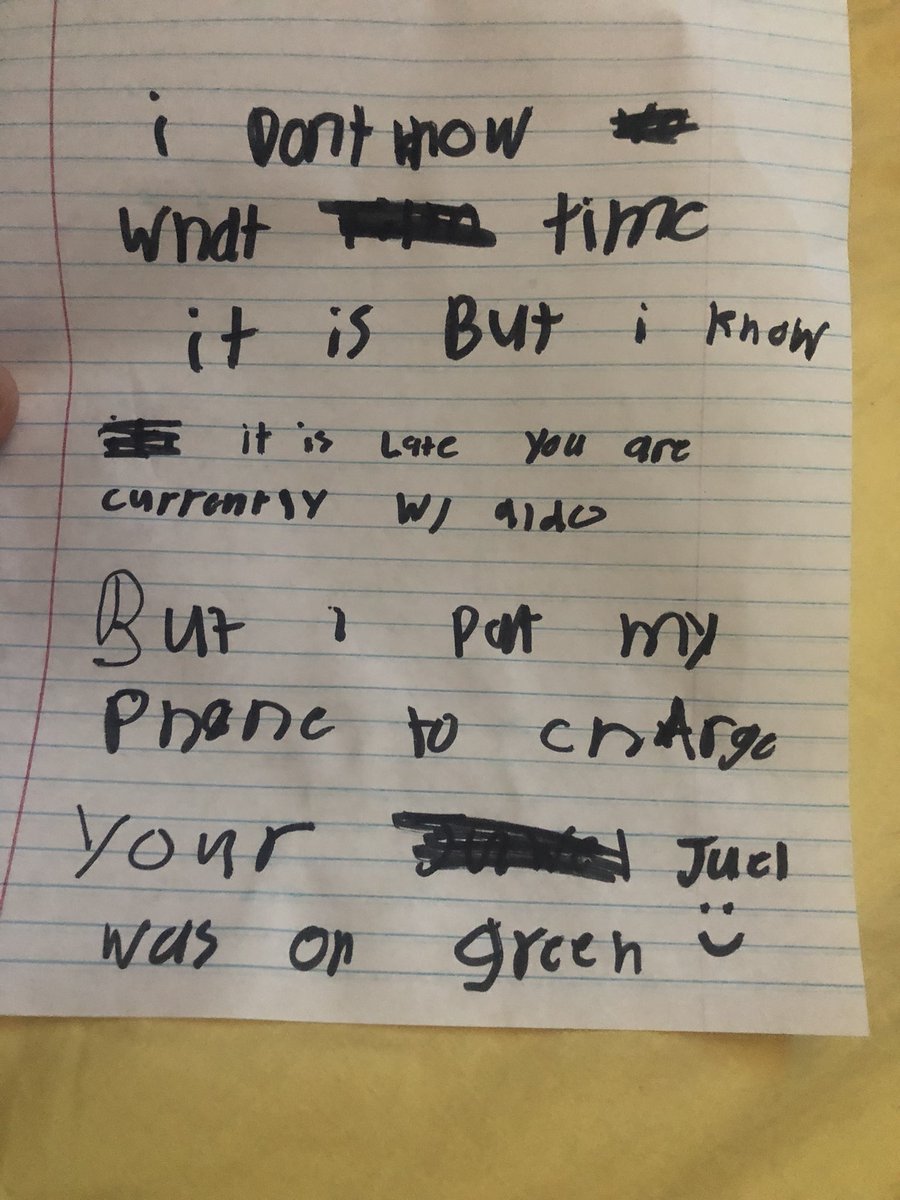 i Dont know
what time
it is But i know
it is Late you are
currently w/ aldo
But i put my
Phone to chArge
Your Juel
was on green :)